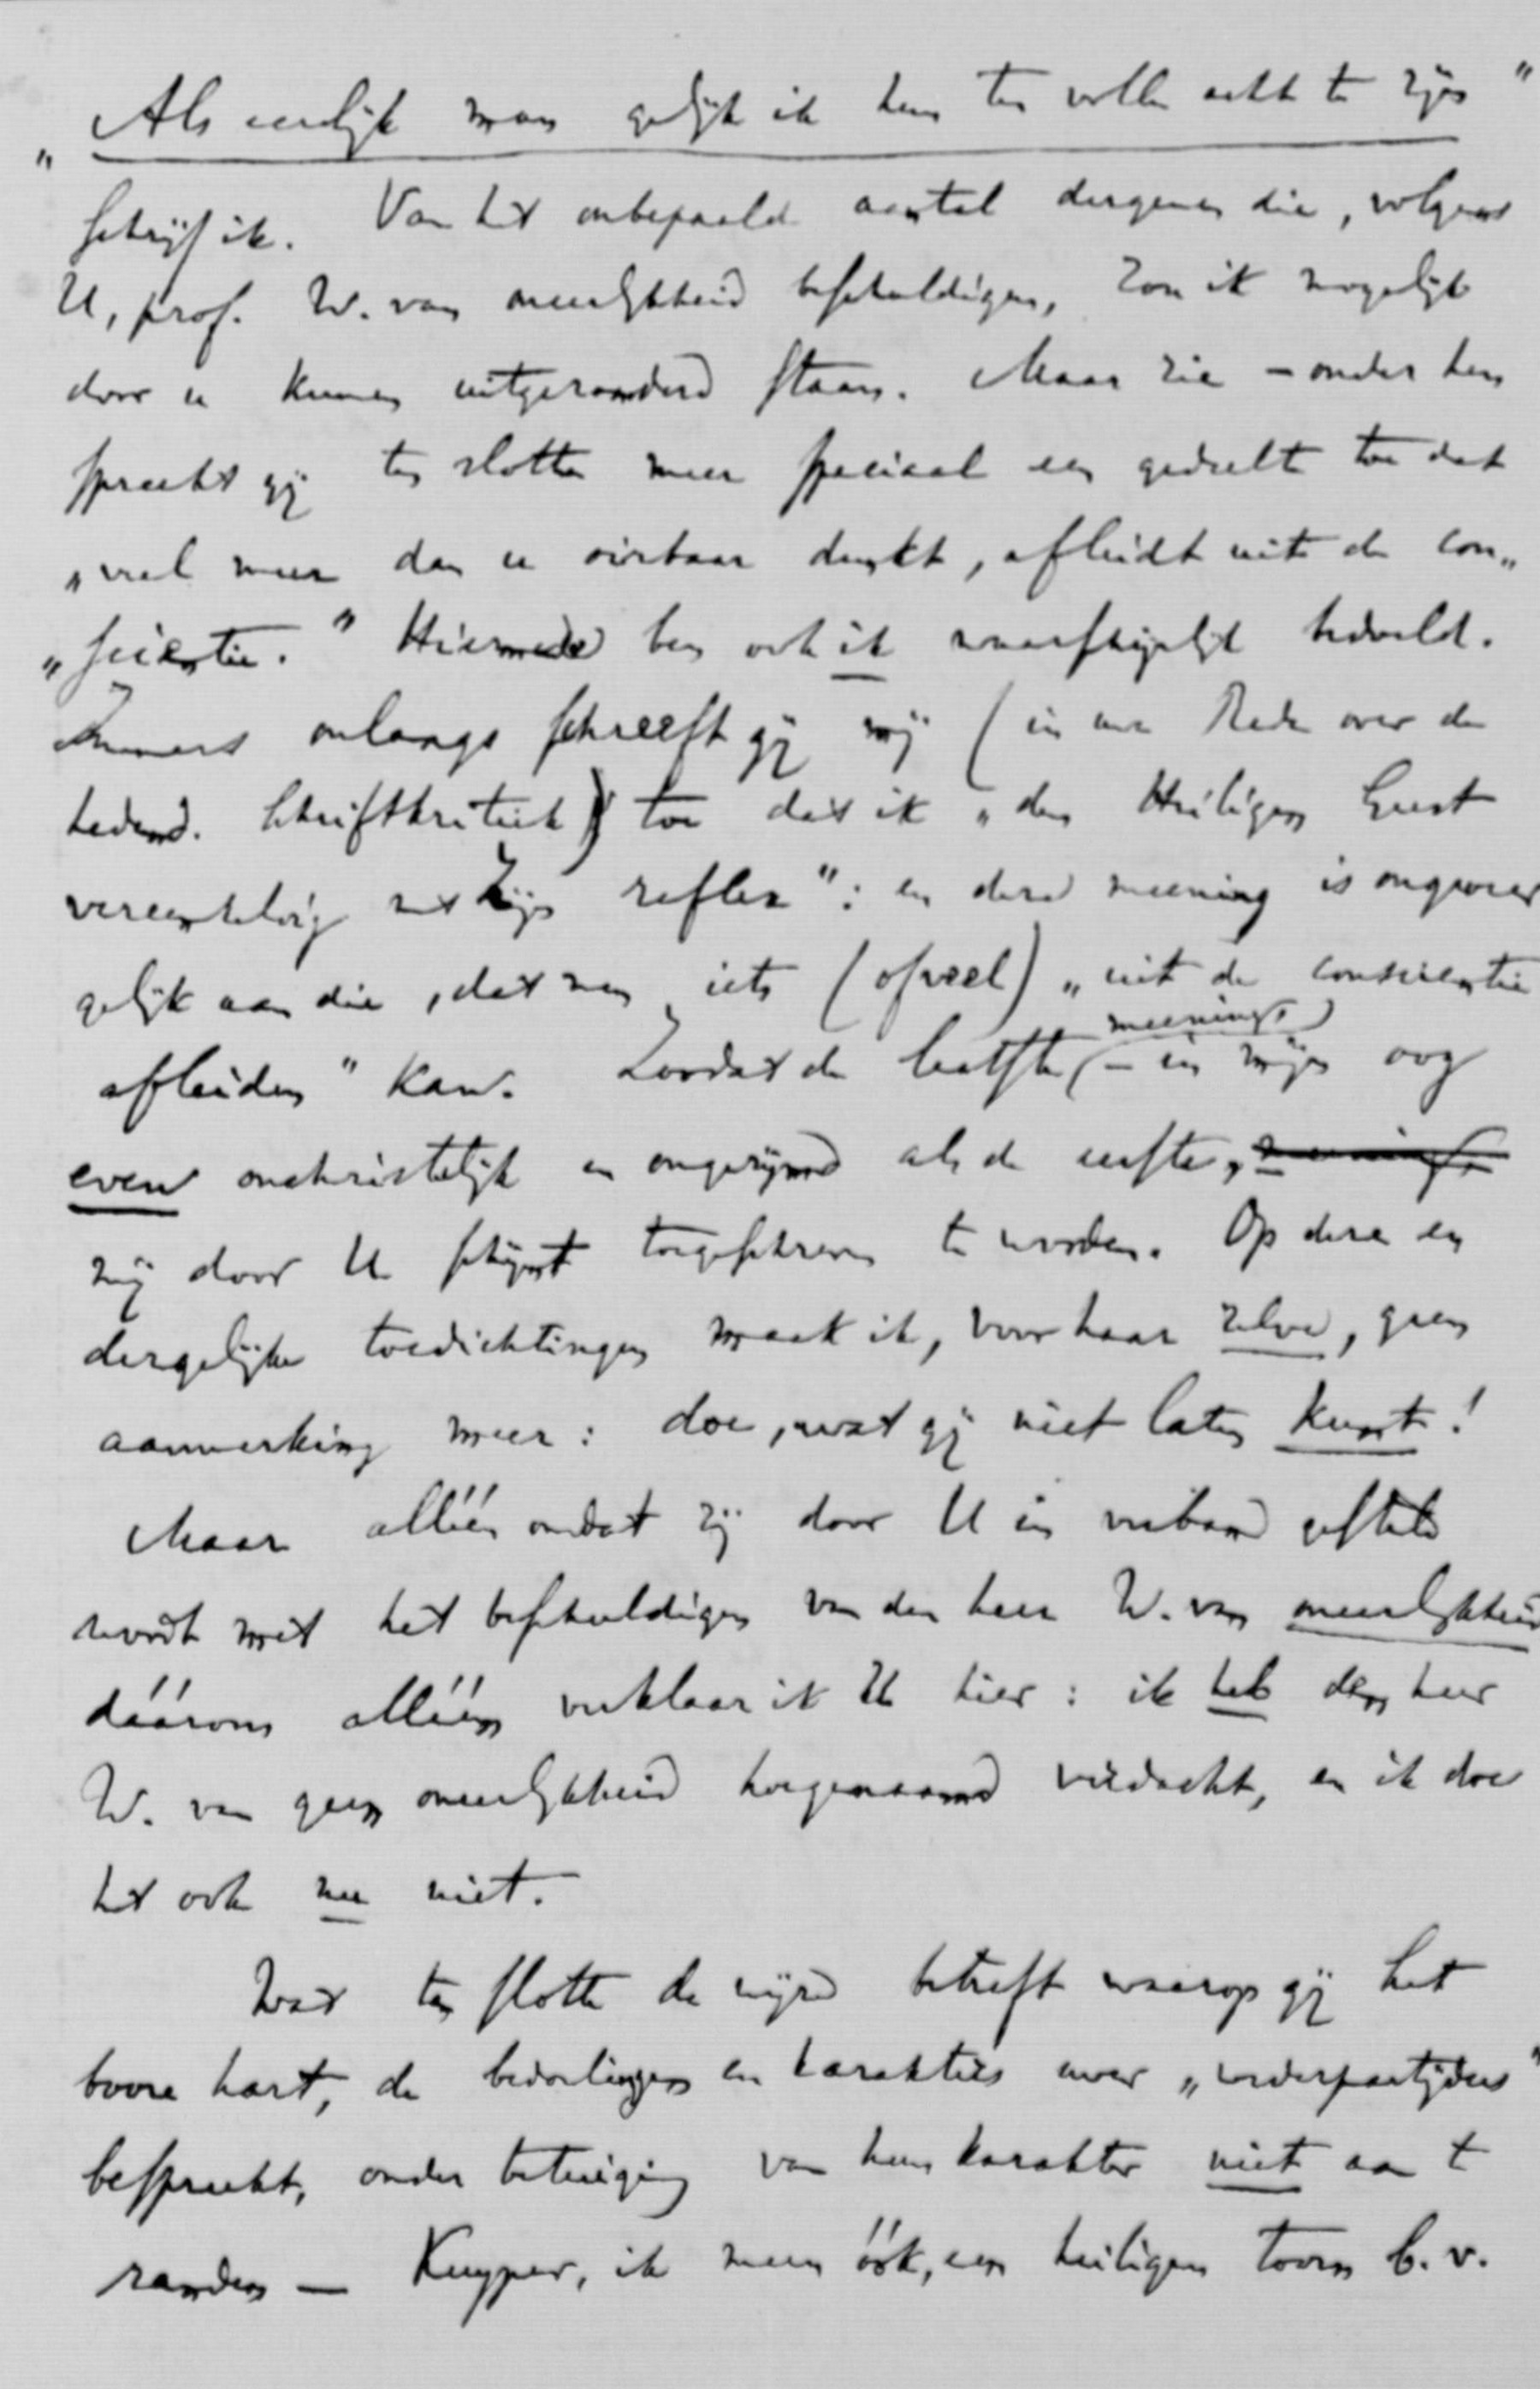 „Als eerlijk man gelijk ik hem ten volle acht te zijn"
schrijf ik. Van het onbepaald aantal dergenen die, volgens
U, prof. W. van oneerlijkheid beschuldigen, zou ik mogelijk
door u kunnen uitgezonderd staan. Maar zie – onder hen
spreekt gij ten slotte meer speciaal een gedeelte toe dat
„veel meer dan u oirbaar dunkt, afleidt uit de con„
„scientie." Hiermede ben ook ik waarschijnlijk bedoeld.
Immers onlangs schreeft gij mij (in uw Rede over de
hedend. Schriftkritiek) toe dat ik „den Heiligen Geest
vereenzelvig met Zijn reflex": en deze meening is ongeveer
gelijk aan die, dat men iets (ofveel) „uit de conscientie
afleiden" kan. Zoodat de laatste meening – in mijn oog
even onchristelijk en ongerijmd als de eerste,
mij door U schijnt toegeschreven te worden. Op deze en
dergelijke toedichtingen maak ik, voor haar zelve, geen
aanmerking meer: doe, wat gij niet laten kunt!
Maar alléén omdat zij door U in verband gesteld
wordt met het beschuldigen van den heer W. van oneerlijkheid
dáárom alléén verklaar ik U hier: ik heb den heer
W. van geen oneerlijkheid hoegenaamd verdacht, en ik doe
het ook nu niet.
Wat ten slotte de wijze betreft waarop gij het
booze hart, de bedoelingen en karakters uwer „wederpartijders"
bespreekt, onder betuiging van hun karakter niet aan t
randen — Kuyper, ik meen óók, een heiligen toorn b.v.